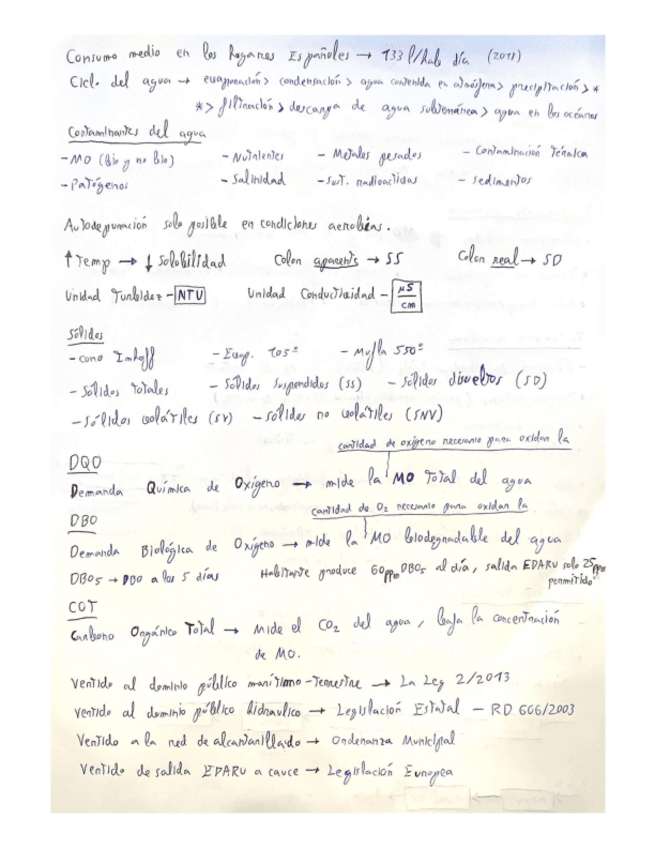 Consumo medio en los hogares Españoles → 133 l/hab día (2018)
Ciclo del agua → evaporación > condensación > agua contenida en atmósfera > precipitación > *
* > filtración > descarga de agua subterránea > agua en los océanos
Contaminantes del agua
- MO (Bio y no Bio) - Nutrientes - Metales pesados - Contaminación Térmica
- Patógenos - Salinidad - Sust. radioactivas - sedimentos
Autodepuración solo posible en condiciones aerobias.
↑ Temp → ↓ Solobilidad Color aparente → SS Color real → SD
Unidad Turbidez - NTU Unidad Conductividad - µS/cm
Sólidos
- cono Imhoff - Evap. 105º - Mufla 550º
- Sólidos Totales - Sólidos Suspendidos (SS) - Sólidos disueltos (SD)
- Sólidos volátiles (SV) - Sólidos no volátiles (SNV)
cantidad de oxígeno necesario para oxidar la
DQO
Demanda Química de Oxígeno → mide la MO Total del agua
cantidad de O2 necesario para oxidar la
DBO
Demanda Biológica de Oxígeno → mide la MO biodegradable del agua
DBO5 → DBO a los 5 días Habitante produce 60ppm DBO5 al día, salida EDARU solo 25ppm
permitido
COT
Carbono Orgánico Total → Mide el CO2 del agua, baja la concentración
de MO.
Vertido al dominio público marítimo-Terrestre → La Ley 2/2013
Vertido al dominio público hidraulico → Legislación Estatal - RD 606/2003
Vertido a la red de alcantarillado → Ordenanza Municipal
Vertido de salida EDARU a cauce → Legislación Europea